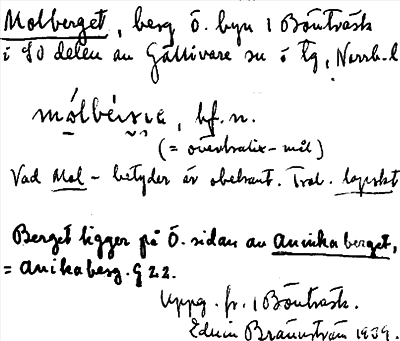 Molberget, berg Ö. byn i Böuträsk
i SO delen av Gällivare sn o tg, Norrb. l
mólbérge, bf. n.
(= överkalix-mål)
Vad Mol- betyder är obekant. Trol. lapskt
Berget ligger på Ö. sidan av Annikaberget,
= Anikaberg. G 22.
Uppg. fr. i Böuträsk.
Edvin Brännström 1939.